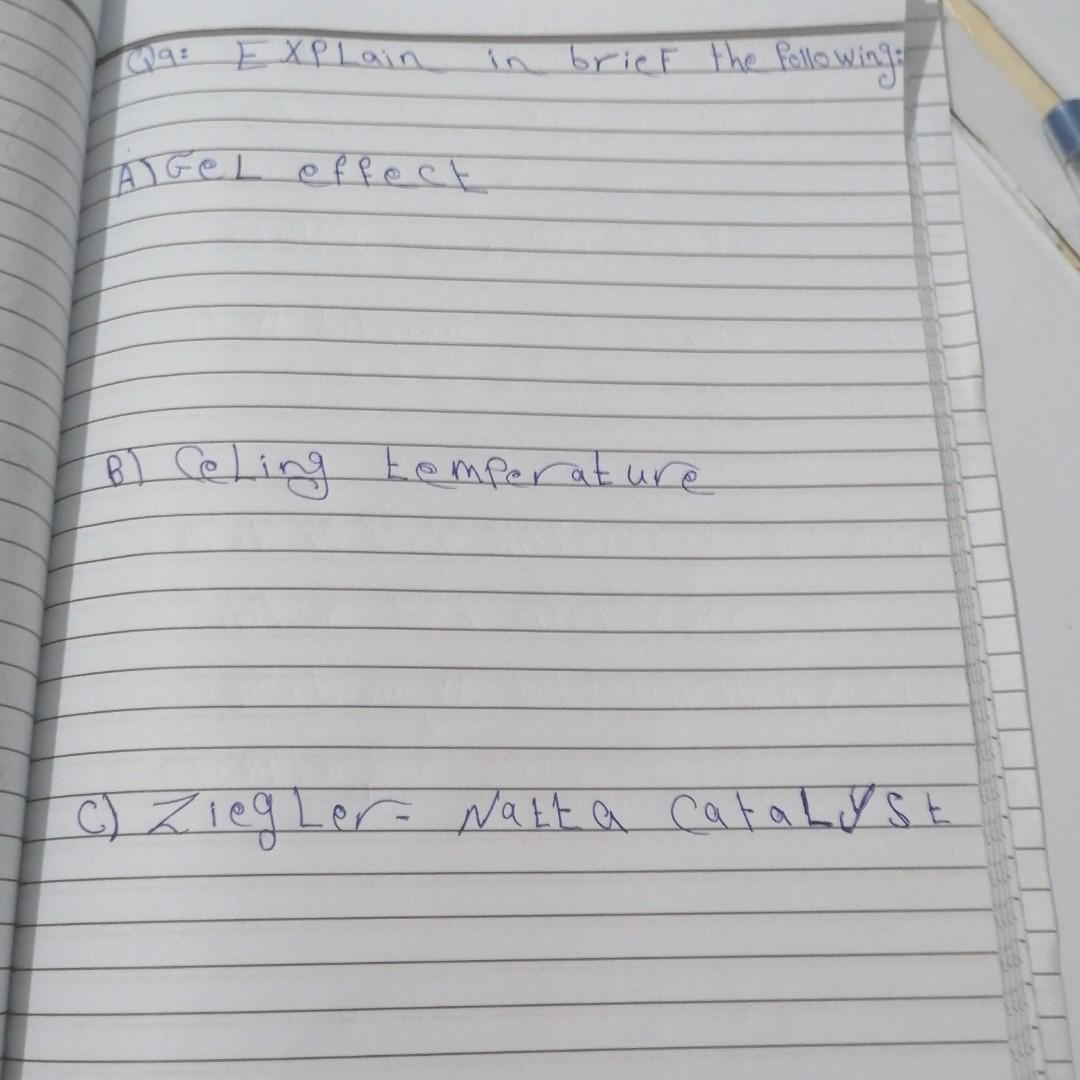 Q9: EXPLain in brief the following:
A) GeL effect
B) CeLing temperature
C) ZiegLer- Natta CataLYst